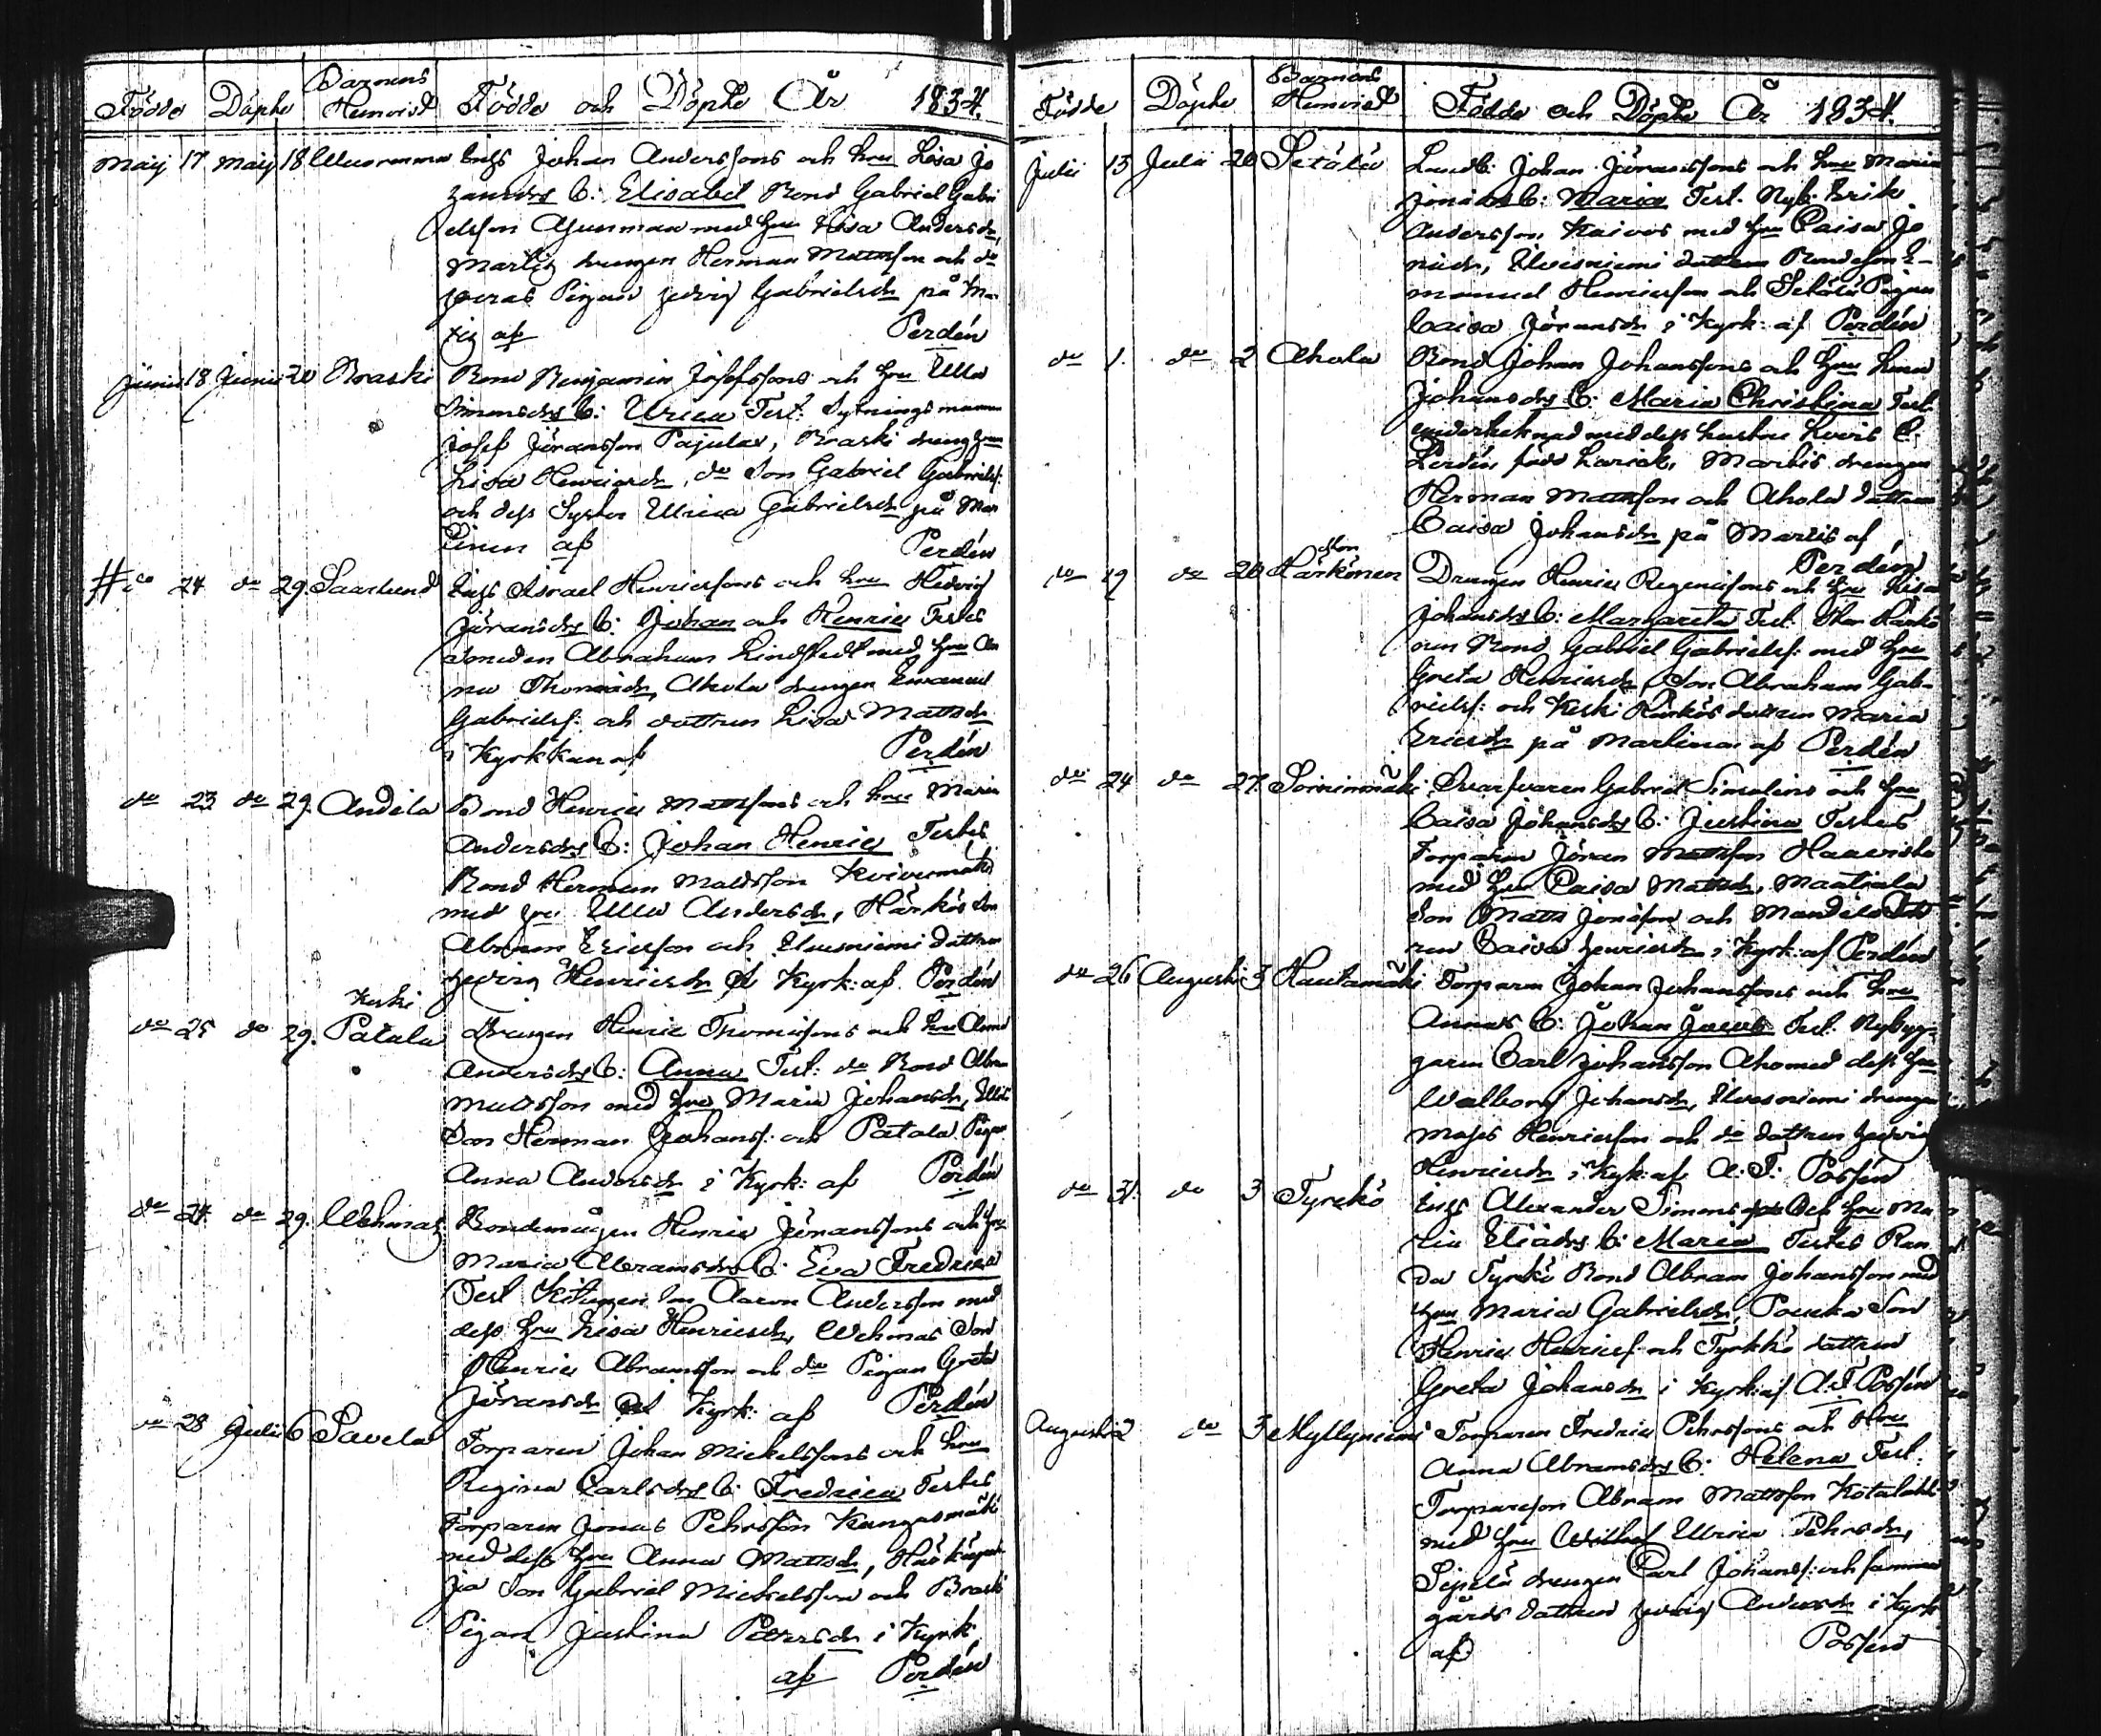 Födde Döpte Barnens Hemvist Födde och Döpte År 1834.
Maij 17 Maij 18 Johan Anderssons och hru Lisa Jo
B: Elisabet Bond Gabriel Gabri
elsson med hru Lisa Andersdr,
drengen Herman Mattsson och do
Pigan Hedvig Gabrielsdr på Ma
af Perdén
Junii 18 Junii 20 Braski Bond Benjamin Josefssons och hru Ulla
Simonsdrs B: Ulrica Test: Sytningsmannen
Josef Jöransson Pajula, Braski dreng hru
Lisa Henricsdr, do Son Gabriel Gabrielss:
och dess Syster Ulrica Gabrielsdr på Mar
af Perdén
# do 24 do 29. Saarlund Inhs Israel Henricssons och hru Hedvig
Jöransdrs B: Johan och Henric Testes
Smeden Abraham Lindstedt med hru An
na Thomasdr, Ahola drengen Emanuel
Gabrielss: och dottren Lisa Mattsdr
i Kyrkkan af Perdén
do 23 do 29. Andila Bond Henric Mattssons och hru Maria
Andersdrs B: Johan Henric Testes
Bond Herman Mattsson Koivumäki
med hru Ulla Andersdr, Härkös Son
Abram Ericsson och Elvesniemi dottren
Hedvig Henricsdr Kyrk: af Perdén
do 25 do 29. Keski Patala Drengen Henric Thomassons och hru Anna
Andersdrs B: Anna Test: do Bond Abra
Mattsson med hru Maria Johansdr,
Son Herman Johanss: och Patala Pigan
Anna Andersdr i Kyrk: af Perdén
do 24 do 29. Wehmas Bondemågen Henric Jöranssons och hru
Maria Abramsdrs B: Eva Fredrica
Test Son Aaron Andersson med
dess hru Lisa Henricsdr, Wehmas Son
Henric Abramsson och do Pigan Greta
Jöransdr Kyrk: af Perdén
do 28 Julii 6 Savela Torparen Johan Mickelssons och hru
Regina Carlsdrs B: Fredrica Testes
Torparen Jonas Pehrsson Kangasmäki
med dess hru Anna Mattsdr,
Son Gabriel Mickelsson och Braski
Pigan Justina Petersdr i Kyrk:
af Perdén
Födde Döpte Barnens Hemvist Födde och Döpte År 1834.
Julii 13 Julii 20 Setälä Landb: Johan Jöranssons och hru Maria
B: Maria Test. Nyb: Erik
Andersson Kaivos med hru Caisa Jo
nasdr, Elvesniemi Bondeson E-
manuel Henricsson och Setälä Pigan
Caisa Jöransdr i Kyrk: af Perdén
do 1. do 2 Ahola Bond Johan Johanssons och hru
Johansdrs B: Maria Christina Test.
undertecknad med dess hustru Lovis C.
Perdén, född Marttis drengen
Herman Mattsson och Ahola dottren
Caisa Johansdr på Marttis af
Perdén
do 19 do 20 Härkönen Drengen Henric och hru Lisa
Johansdrs B: Margareta Test. Härkö
nen Bond Gabriel Gabrielss: med hru
Greta Henricsdr, Son Abraham Gab-
rielss: och Keski Härkös dottren Maria
Ericsdr på Martina af Perdén
do 24 do 27. Soininmäki Svarfvaren Gabriel Simelins och hru
Caisa Johansdrs B: Justina Testes
Torparen Jöran Mattsson Haavisto
med hru Caisa Mattsdr, Maatiala
Son Matts Jonasson och Mandila Dott
ren Caisa Henricsdr i Kyrk: af Perdén
do 26 Augusti 3 Hautamäki Torparen Johan Johanssons och hru
Annas B: Johan Jacob Test. Nybyg-
garen Carl Johansson Aho med dess hru
Walborg Johansdr, Elvesniemi drengen
Moses Henricsson och do dottren Hedvig
Henricsdr i Kyrk: af A: F: Possén
do 31. do 3 Tyrckö Inhs Alexander Simons och hru Ma
ria Eliædrs B: Maria Testes Ran
da Tyrkö Bond Abram Johansson med
hru Maria Gabrielsdr, Son
Henric Henricss: och Tyrkkö dottren
Greta Johansdr i Kyrk: af A: F Possén
Augusti 2 do 3 Myllyniemi Torparen Fredric Pehrssons och Hru
Anna Abramsdrs B: Helena Test:
Torpareson Abram Mattsson Kotalaht
med hru Ulrica Pehrsdr,
Sipilä drengen Carl Johanss: och samma
gårds dottren Hedvig Andersdr i Kyrk
af Possén